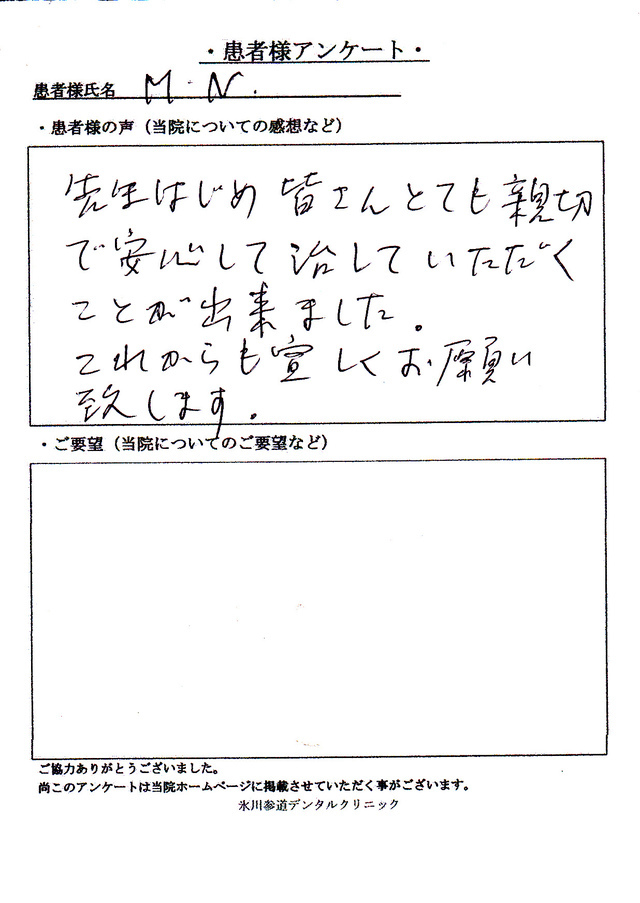 ・患者様アンケート・
患者様氏名 M.N.
・患者様の声（当院についての感想など）
先生はじめ皆さんとても親切
で安心して治していただく
ことが出来ました。
これからも宜しくお願い
致します。
・ご要望（当院についてのご要望など）
ご協力ありがとうございました。
尚このアンケートは当院ホームページに掲載させていただく事がございます。
氷川参道デンタルクリニック